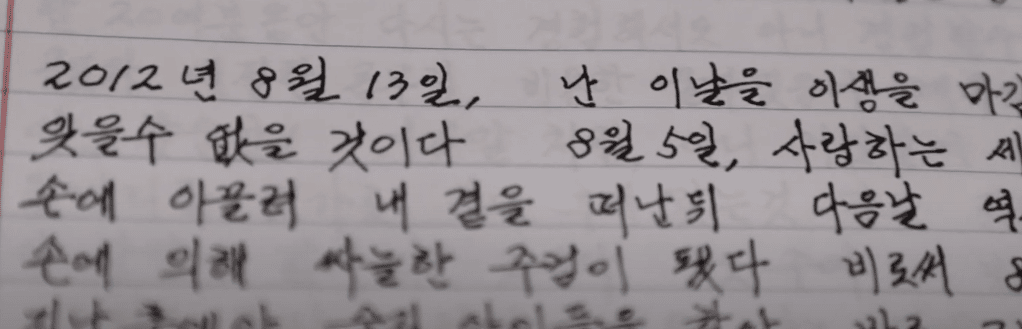 2012년 8월 13일, 난 이날을 이생을 마감
잊을수 없을 것이다 8월 5일, 사랑하는 세
손에 이끌려 내 곁을 떠난뒤 다음날
손에 의해 싸늘한 주검이 됐다 비로써 8